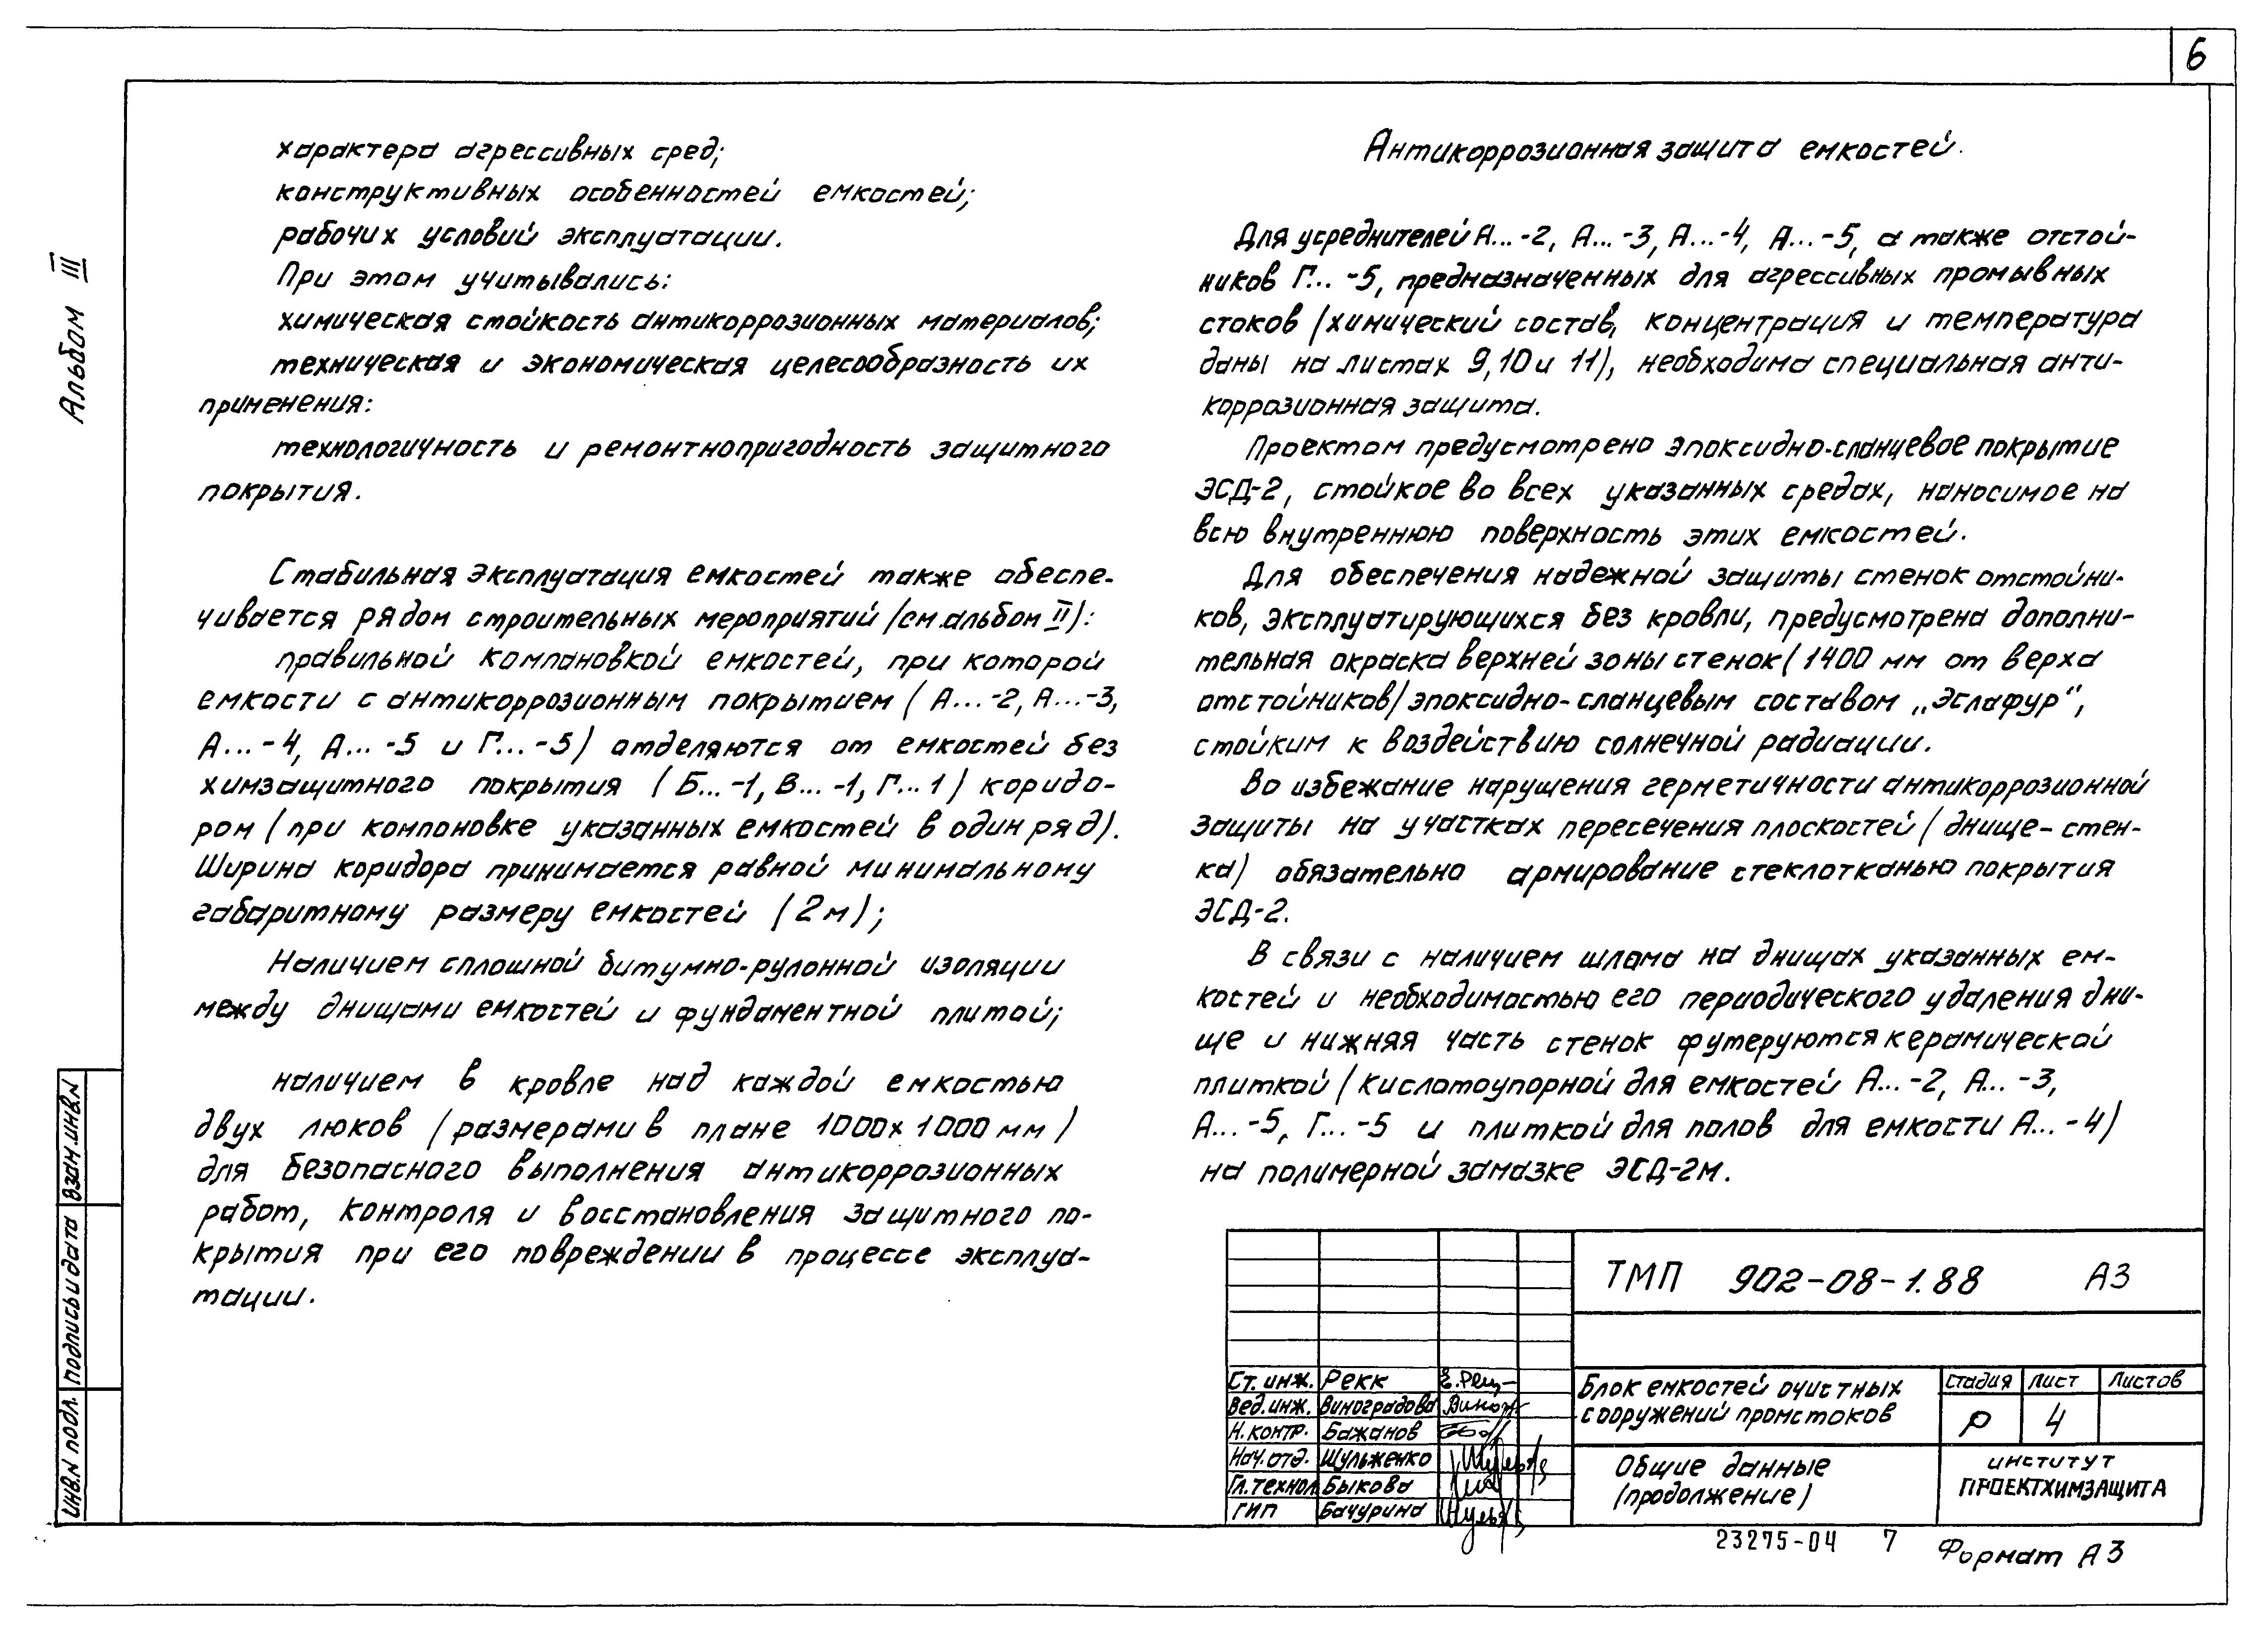 6
Альбом III
характера агрессивных сред;
конструктивных особенностей емкостей;
рабочих условий эксплуатации.
При этом учитывались:
химическая стойкость антикоррозионных материалов;
техническая и экономическая целесообразность их
применения:
технологичность и ремонтнопригодность защитного
покрытия.
Стабильная эксплуатация емкостей также обеспе-
чивается рядом строительных мероприятий (см. альбом II):
правильной компановкой емкостей, при которой
емкости с антикоррозионным покрытием (А...-2, А...-3,
А...-4, А...-5 и Г...-5) отделяются от емкостей без
химзащитного покрытия (Б...-1, В...-1, Г...1) коридо-
ром (при компоновке указанных емкостей в один ряд).
Ширина коридора принимается равной минимальному
габаритному размеру емкостей (2м);
Наличием сплошной битумно-рулонной изоляции
между днищами емкостей и фундаментной плитой;
наличием в кровле над каждой емкостью
двух люков (размерами в плане 1000х1000 мм)
для безопасного выполнения антикоррозионных
работ, контроля и восстановления защитного по-
крытия при его повреждении в процессе эксплуа-
тации.
Антикоррозионная защита емкостей.
Для усреднителей А...-2, А...-3, А...-4, А...-5, а также отстой-
ников Г...-5, предназначенных для агрессивных промывных
стоков (химический состав, концентрация и температура
даны на листах 9,10 и 11), необходима специальная анти-
коррозионная защита.
Проектом предусмотрено эпоксидно-сланцевое покрытие
ЭСД-2, стойкое во всех указанных средах, наносимое на
всю внутреннюю поверхность этих емкостей.
Для обеспечения надежной защиты стенок отстойни-
ков, эксплуатирующихся без кровли, предусмотрена дополни-
тельная окраска верхней зоны стенок (1400 мм от верха
отстойников) эпоксидно-сланцевым составом „Эслафур",
стойким к воздействию солнечной радиации.
Во избежание нарушения герметичности антикоррозионной
защиты на участках пересечения плоскостей (днище-стен-
ка) обязательно армирование стеклотканью покрытия
ЭСД-2.
В связи с наличием шлама на днищах указанных ем-
костей и необходимостью его периодического удаления дни-
ще и нижняя часть стенок футеруются керамической
плиткой (кислотоупорной для емкостей А...-2, А...-3,
А...-5, Г...-5 и плиткой для полов для емкости А...-4)
на полимерной замазке ЭСД-2м.
ТМП 902-08-1.88 АЗ
Ст. инж. Рекк
Вед. инж. Виноградова
Н. контр. Бажанов
Нач. отд. Шульженко
Гл. технол. Быкова
ГИП Бачурина
Блок емкостей очистных
сооружений промстоков
Стадия Лист Листов
Р 4
Общие данные
(продолжение)
ИНСТИТУТ
ПРОЕКТХИМЗАЩИТА
23275-04 7
Формат А3
Инв.N подл. Подпись и дата Взам.инв.N